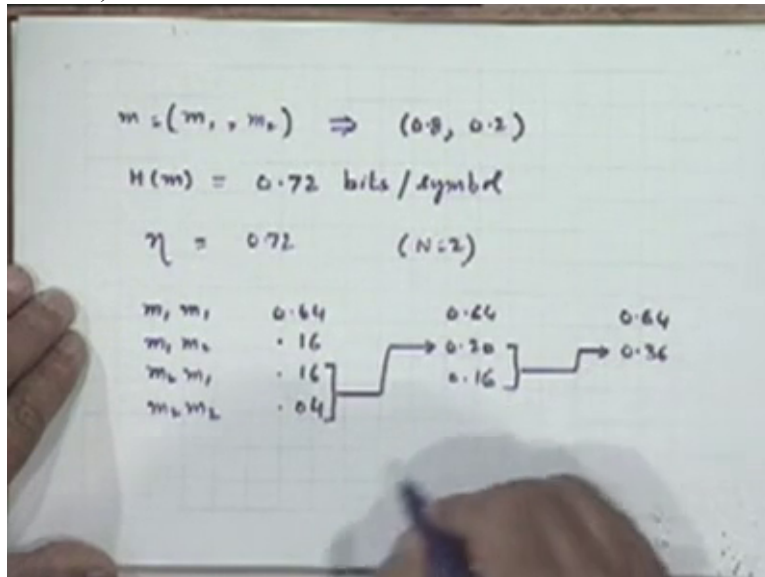 m = (m₁, m₂) ⇒ (0.8, 0.2)
H(m) = 0.72 bits/symbol
η = 0.72 (N=2)
m₁ m₁ 0.64 0.64 0.64
m₁ m₂ .16 0.20 0.36
m₂ m₁ .16 0.16
m₂ m₂ .04